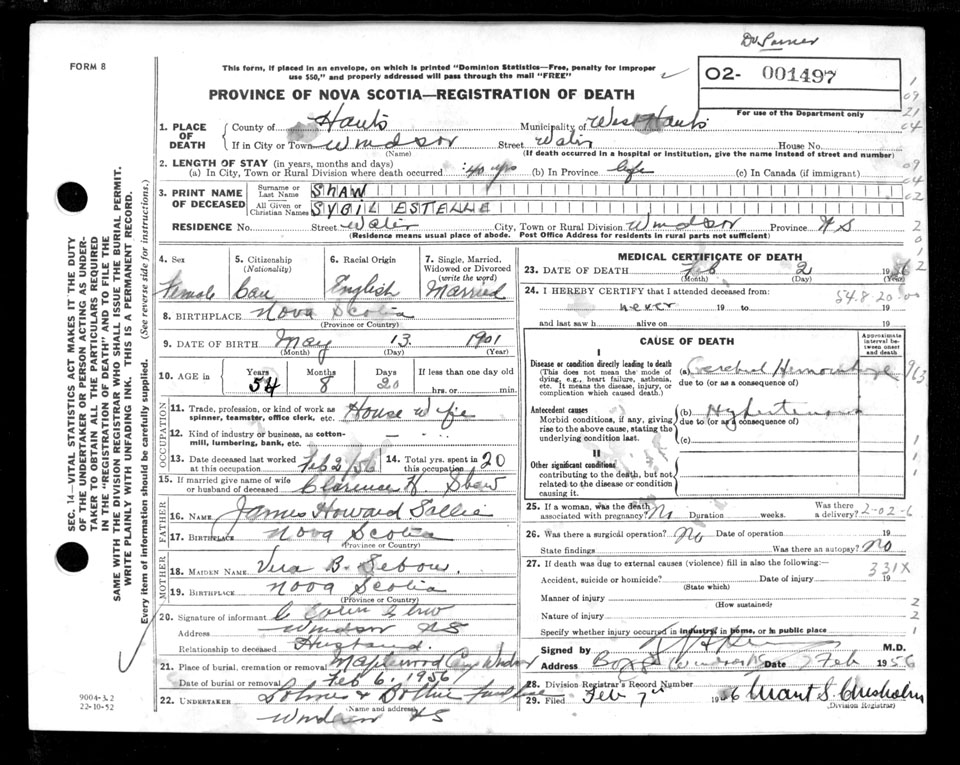 FORM 8
This form, if placed in an envelope, on which is printed "Dominion Statistics—Free, penalty for improper
use $50," and properly addressed will pass through the mail "FREE"
PROVINCE OF NOVA SCOTIA—REGISTRATION OF DEATH
02- 001497
For use of the Department only
1. PLACE OF DEATH
County of Hants Municipality of West Hants
If in City or Town Windsor Street Water House No.
(Name) (If death occurred in a hospital or Institution, give the name instead of street and number)
2. LENGTH OF STAY (in years, months and days)
(a) In City, Town or Rural Division where death occurred 40 yrs (b) In Province life (c) In Canada (if immigrant)
3. PRINT NAME OF DECEASED
Surname or Last Name SHAW
All Given or Christian Names SYBIL ESTELLE
RESIDENCE No. Street Water City, Town or Rural Division Windsor Province N S
(Residence means usual place of abode. Post Office Address for residents in rural parts not sufficient)
4. Sex
Female
5. Citizenship
(Nationality)
Can
6. Racial Origin
English
7. Single, Married, Widowed or Divorced
(write the word)
Married
8. BIRTHPLACE Nova Scotia
(Province or Country)
9. DATE OF BIRTH May 13 1901
(Month) (Day) (Year)
10. AGE in Years Months Days If less than one day old
54 8 20 hrs. or min.
OCCUPATION
11. Trade, profession, or kind of work as spinner, teamster, office clerk, etc. House Wife
12. Kind of industry or business, as cotton-mill, lumbering, bank, etc. —
13. Date deceased last worked at this occupation Feb 2/56
14. Total yrs. spent in this occupation 20
15. If married give name of wife or husband of deceased Clarence H Shaw
FATHER
16. NAME James Howard
17. BIRTHPLACE Nova Scotia
(Province or Country)
MOTHER
18. MAIDEN NAME Vera B.
19. BIRTHPLACE Nova Scotia
(Province or Country)
20. Signature of informant
Address Windsor NS
Relationship to deceased Husband
21. Place of burial, cremation or removal Maplewood Windsor
Date of burial or removal Feb 6, 1956
22. UNDERTAKER
(Name and address)
Windsor NS
MEDICAL CERTIFICATE OF DEATH
23. DATE OF DEATH Feb 2 1956
(Month) (Day) (Year)
24. I HEREBY CERTIFY that I attended deceased from: 54.8.20.00
never 19 to 19
and last saw h alive on 19
CAUSE OF DEATH
Approximate interval between onset and death
I
Disease or condition directly leading to death
(This does not mean the mode of dying, e.g., heart failure, asthenia, etc. It means the disease, injury, or complication which caused death.)
(a) Cerebral Hemorrhage
due to (or as a consequence of)
Antecedent causes
Morbid conditions, if any, giving rise to the above cause, stating the underlying condition last.
(b) Hypertension
due to (or as a consequence of)
(c)
II
Other significant conditions
contributing to the death, but not related to the disease or condition causing it.
25. If a woman, was the death associated with pregnancy? No Duration weeks. Was there a delivery? 2-02-6
26. Was there a surgical operation? No Date of operation 19
State findings Was there an autopsy? No
27. If death was due to external causes (violence) fill in also the following:
331X
Accident, suicide or homicide? Date of injury 19
(State which)
Manner of injury
(How sustained)
Nature of injury
Specify whether injury occurred in industry, in home, or in public place
Signed by
Address Windsor NS Date 7 Feb 1956
28. Division Registrar's Record Number
29. Filed Feb 7 1956 S. Chisholm
(Division Registrar)
SEC. 14—VITAL STATISTICS ACT MAKES IT THE DUTY
OF THE UNDERTAKER OR PERSON ACTING AS UNDER-
TAKER TO OBTAIN ALL THE PARTICULARS REQUIRED
IN THE "REGISTRATION OF DEATH" AND TO FILE THE
SAME WITH THE DIVISION REGISTRAR WHO SHALL ISSUE THE BURIAL PERMIT.
WRITE PLAINLY WITH UNFADING INK. THIS IS A PERMANENT RECORD.
Every item of information should be carefully supplied. (See reverse side for instructions.)
9004-3.2
22-10-52